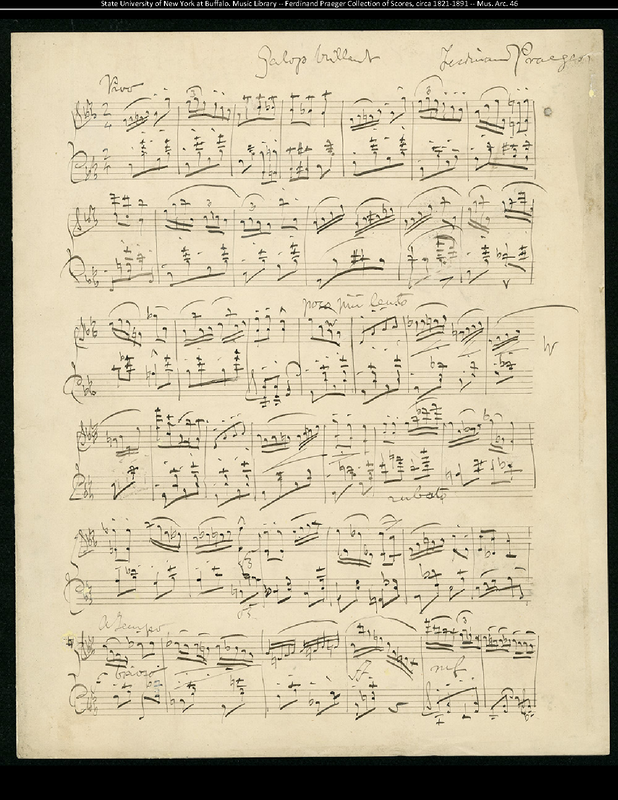 State University of New York at Buffalo. Music Library -- Ferdinand Praeger Collection of Scores, circa 1821-1891 -- Mus. Arc. 46
Galop brillant Ferdinand Praeger
Vivo
poco più lento
rubato
A Tempo